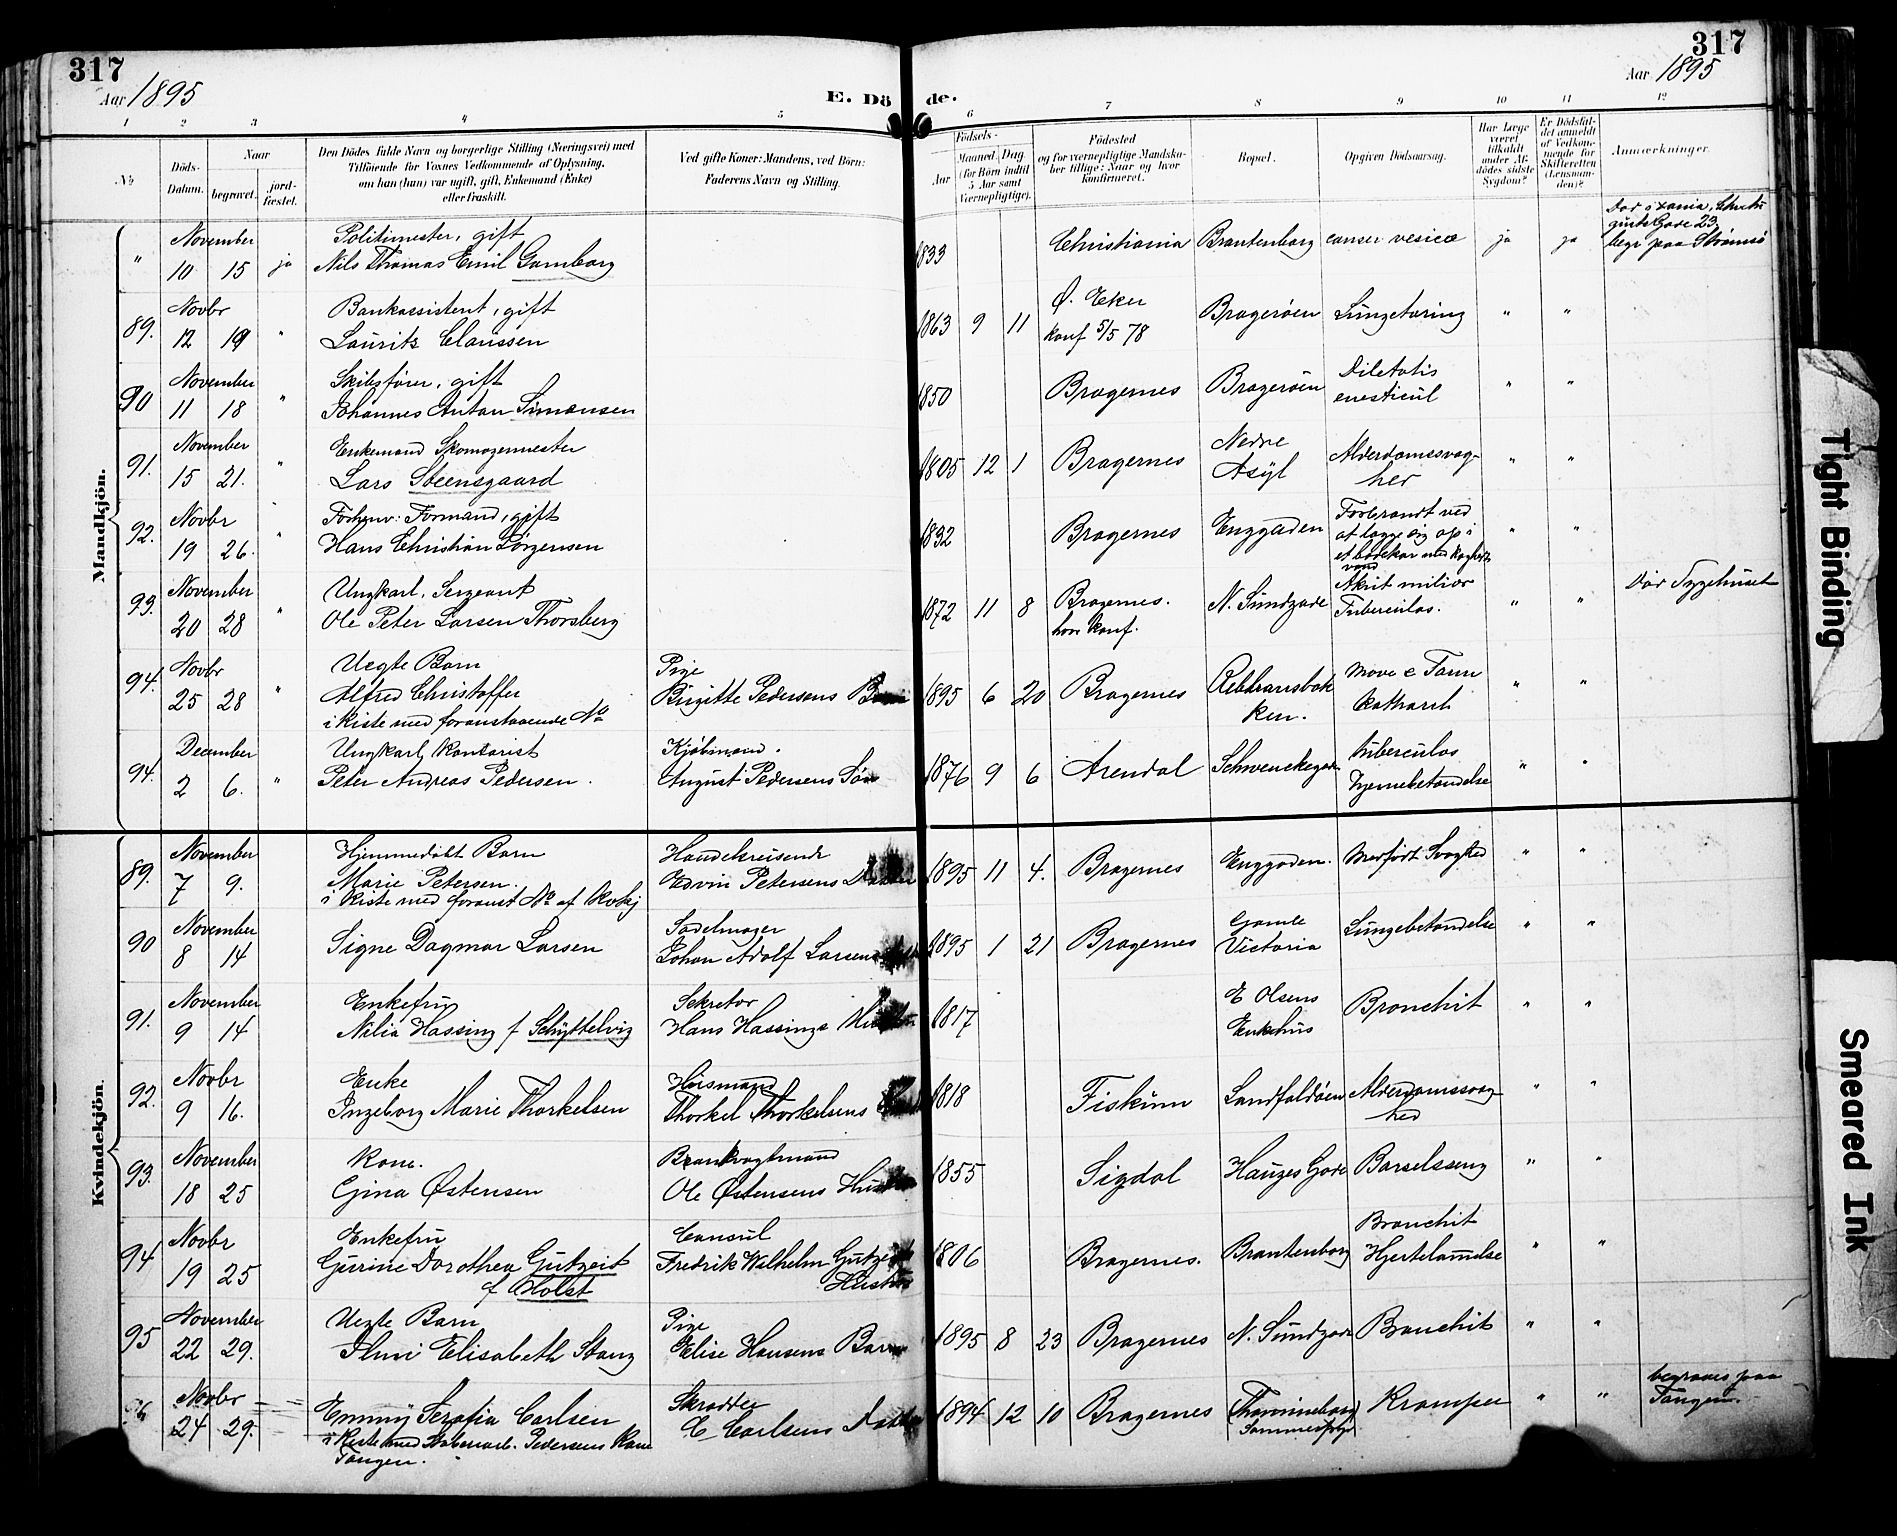 317
Aar 1895
E. Dö de.
317
Aar 1895
1 2 3 4 5 6 7 8 9 10 11 12
No
Döds-
Datum.
Naar
begravet.
jord-
fæstet.
Den Dödes fulde Navn og borgerlige Stilling (Næringsvei) med
Tilföiende for Voxnes Vedkommende af Oplysning,
om han (hun) var ugift, gift, Enkemand (Enke)
eller fraskilt.
Ved gifte Koner: Mandens, ved Börn:
Faderens Navn og Stilling.
Födsels-
Aar
Maaned. Dag.
(for Börn indtil
5 Aar samt
Værnepligtige).
Födested
og for værnepligtige Mandska-
ber tillige: Naar og hvor
konfirmeret.
Bopæl.
Opgiven Dödsaarsag.
Har Læge
været
tilkaldt
under Af-
dödes sidste
Sygdom?
Er Dödsfal-
det anmeldt
af Vedkom-
mende for
Skifteretten
(Lensman-
den)?
Anmærkninger.
Mandkjön.
" November 10 15 ja
Politimester, gift
Nils Thomas Emil Gamborg
1833 Christiania Brantenborg cancer vesicæ ja ja
Gade 23
begr paa Strømsø
89. Novbr 12 19 "
Bankassistent, gift
Laurits Claussen
1863 9 11 Ø. Eker
konf 5/5 78
Bragerøen Lungetæring " "
90 November 11 18 "
Skibsfører, gift
Johannes Anton Simonsen
1850 Bragernes Bragerøen " "
91. November 15 21. "
Enkemand Skomagermester
Lars Steensgaard
1805 12 1 Bragernes Nedre
Asyl
Alderdomssvag-
hed " "
92. Novbr 19 26. "
Formand, gift
Hans Christian Jørgensen
1832 Bragernes Enggaden
Forbrændt ved
at lægge sig op i
et badekar med koghedt
vand " "
93. November 20 28 "
Ungkarl, Sergeant
Ole Peter Larsen Thorsberg
1872 11 8 Bragernes.
konf.
N. Sundgade
Akut miliær
Tuberculos. " "
Død Sygehuset
94. Novbr 25 28 "
Uegte Barn
Alfred Christoffer
i kiste med foranstaaende No
Pige
Birgitte Pedersens Barn
1895 6 20 Bragernes Rebbansbak
ken.
Mave & Tarm
katharrh " "
94. December 2 6. "
Ungkarl, Kontorist
Peter Andreas Pedersen.
Kjøbmand.
August Pedersens Søn
1876 9 6 Arendal Schwenckegade
tuberculos
Hjernebetændelse " "
Kvindekjön.
89. November 7 9.
Hjemmedøbt Barn
Marie Petersen.
i kiste med foranst No af Mkj
Handelsreisende
Edvin Petersens Datter
1895 11 4. Bragernes Enggaden. Medfødt Svaghed " "
90 November 8 14
Signe Dagmar Larsen
Sadelmager
Johan Adolf Larsens
1895 1 21 Bragernes Gamle
Victoria Lungebetændelse " "
91. November 9 14
Enkefru
Nilia Hassing f Schyttelvig
Sekretær
Hans Hassings Hustru
1817 E Olsens
Enkehus Bronchit " "
92. Novbr 9 16.
Enke
Ingeborg Marie Thorkelsen
Husmand
Thorkel Thorkelsens
1818 Fiskum Landfaldøen Alderdomssvag-
hed " "
93. November 18 25
Kone.
Gina Østensen
Brankvagtmand
Ole Østensens Hustru
1855 Sigdal Hauges Gade Barselsseng " "
94 Novbr 19 25
Enkefru
Gurine Dorothea Gutzeit
f Holst
Consul
Fredrik Wilhelm Gutzeit
Hustru
1806 Bragernes. Brantenborg Bronchit
Hjertelamelse " "
95 November 22 29.
Uegte Barn
Elisabeth Stang
Pige
Elise Hansens Barn
1895 8 23 Bragernes N. Sundgade Bronchit " "
96 Novbr 24 29.
Emmy Serafia Carlsen
i kiste med Pedersens Kone
Tangen.
Skrædder
C. Carlsens Datter
1894 12 10 Bragernes Krampe " "
begraves paa
Tangen.
Tight Binding
Smeared Ink